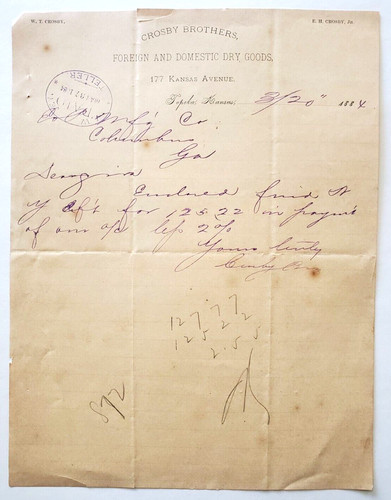 W. T. CROSBY. E. H. CROSBY, Jr.
CROSBY BROTHERS,
FOREIGN AND DOMESTIC DRY GOODS,
177 KANSAS AVENUE.
Topeka, Kansas, 3/20" 1884
TELLER
Mfg Co
Columbus
Ga
Enclosed find N
Y Dft for 125 22 in paym't
of our a/c less 2%
Yours truly
Crosby Bros
127.77
125 22
2.55
872